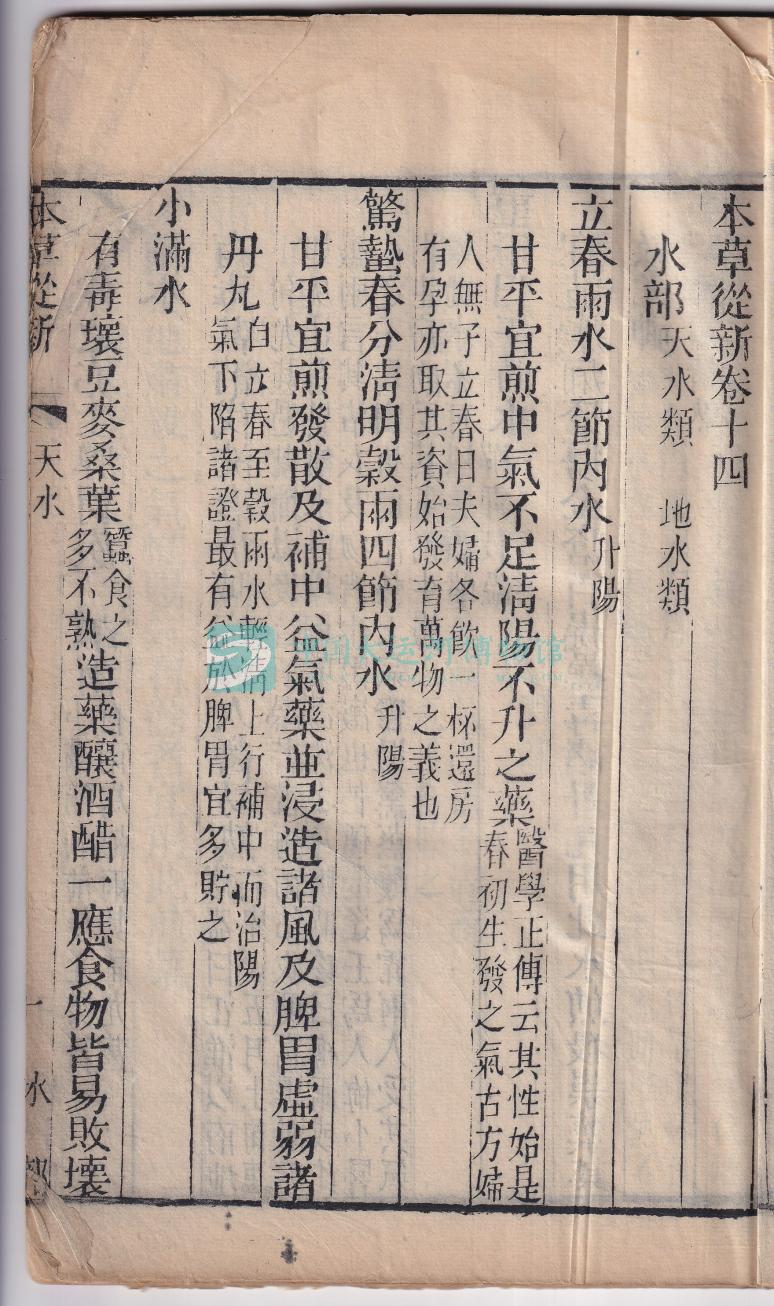 本草從新卷十四
水部天水類 地水類
立春雨水二節內水升陽
甘平宜煎中氣不足清陽不升之藥醫學正傳云其性始是
春初生發之氣古方婦
人無子立春日夫婦各飲一杯還房
有孕亦取其資始發育萬物之義也
驚蟄春分清明穀雨四節內水升陽
甘平宜煎發散及補中益氣藥並浸造諸風及脾胃虛弱諸
丹丸自立春至穀雨水輕清上行補中而治陽
氣下陷諸證最有益於脾胃宜多貯之
小滿水
有毒壞豆麥桑葉蠶食之
多不熟造藥釀酒醋一應食物皆易敗壞
本草從新 天水 一 水部
中国大运河博物馆